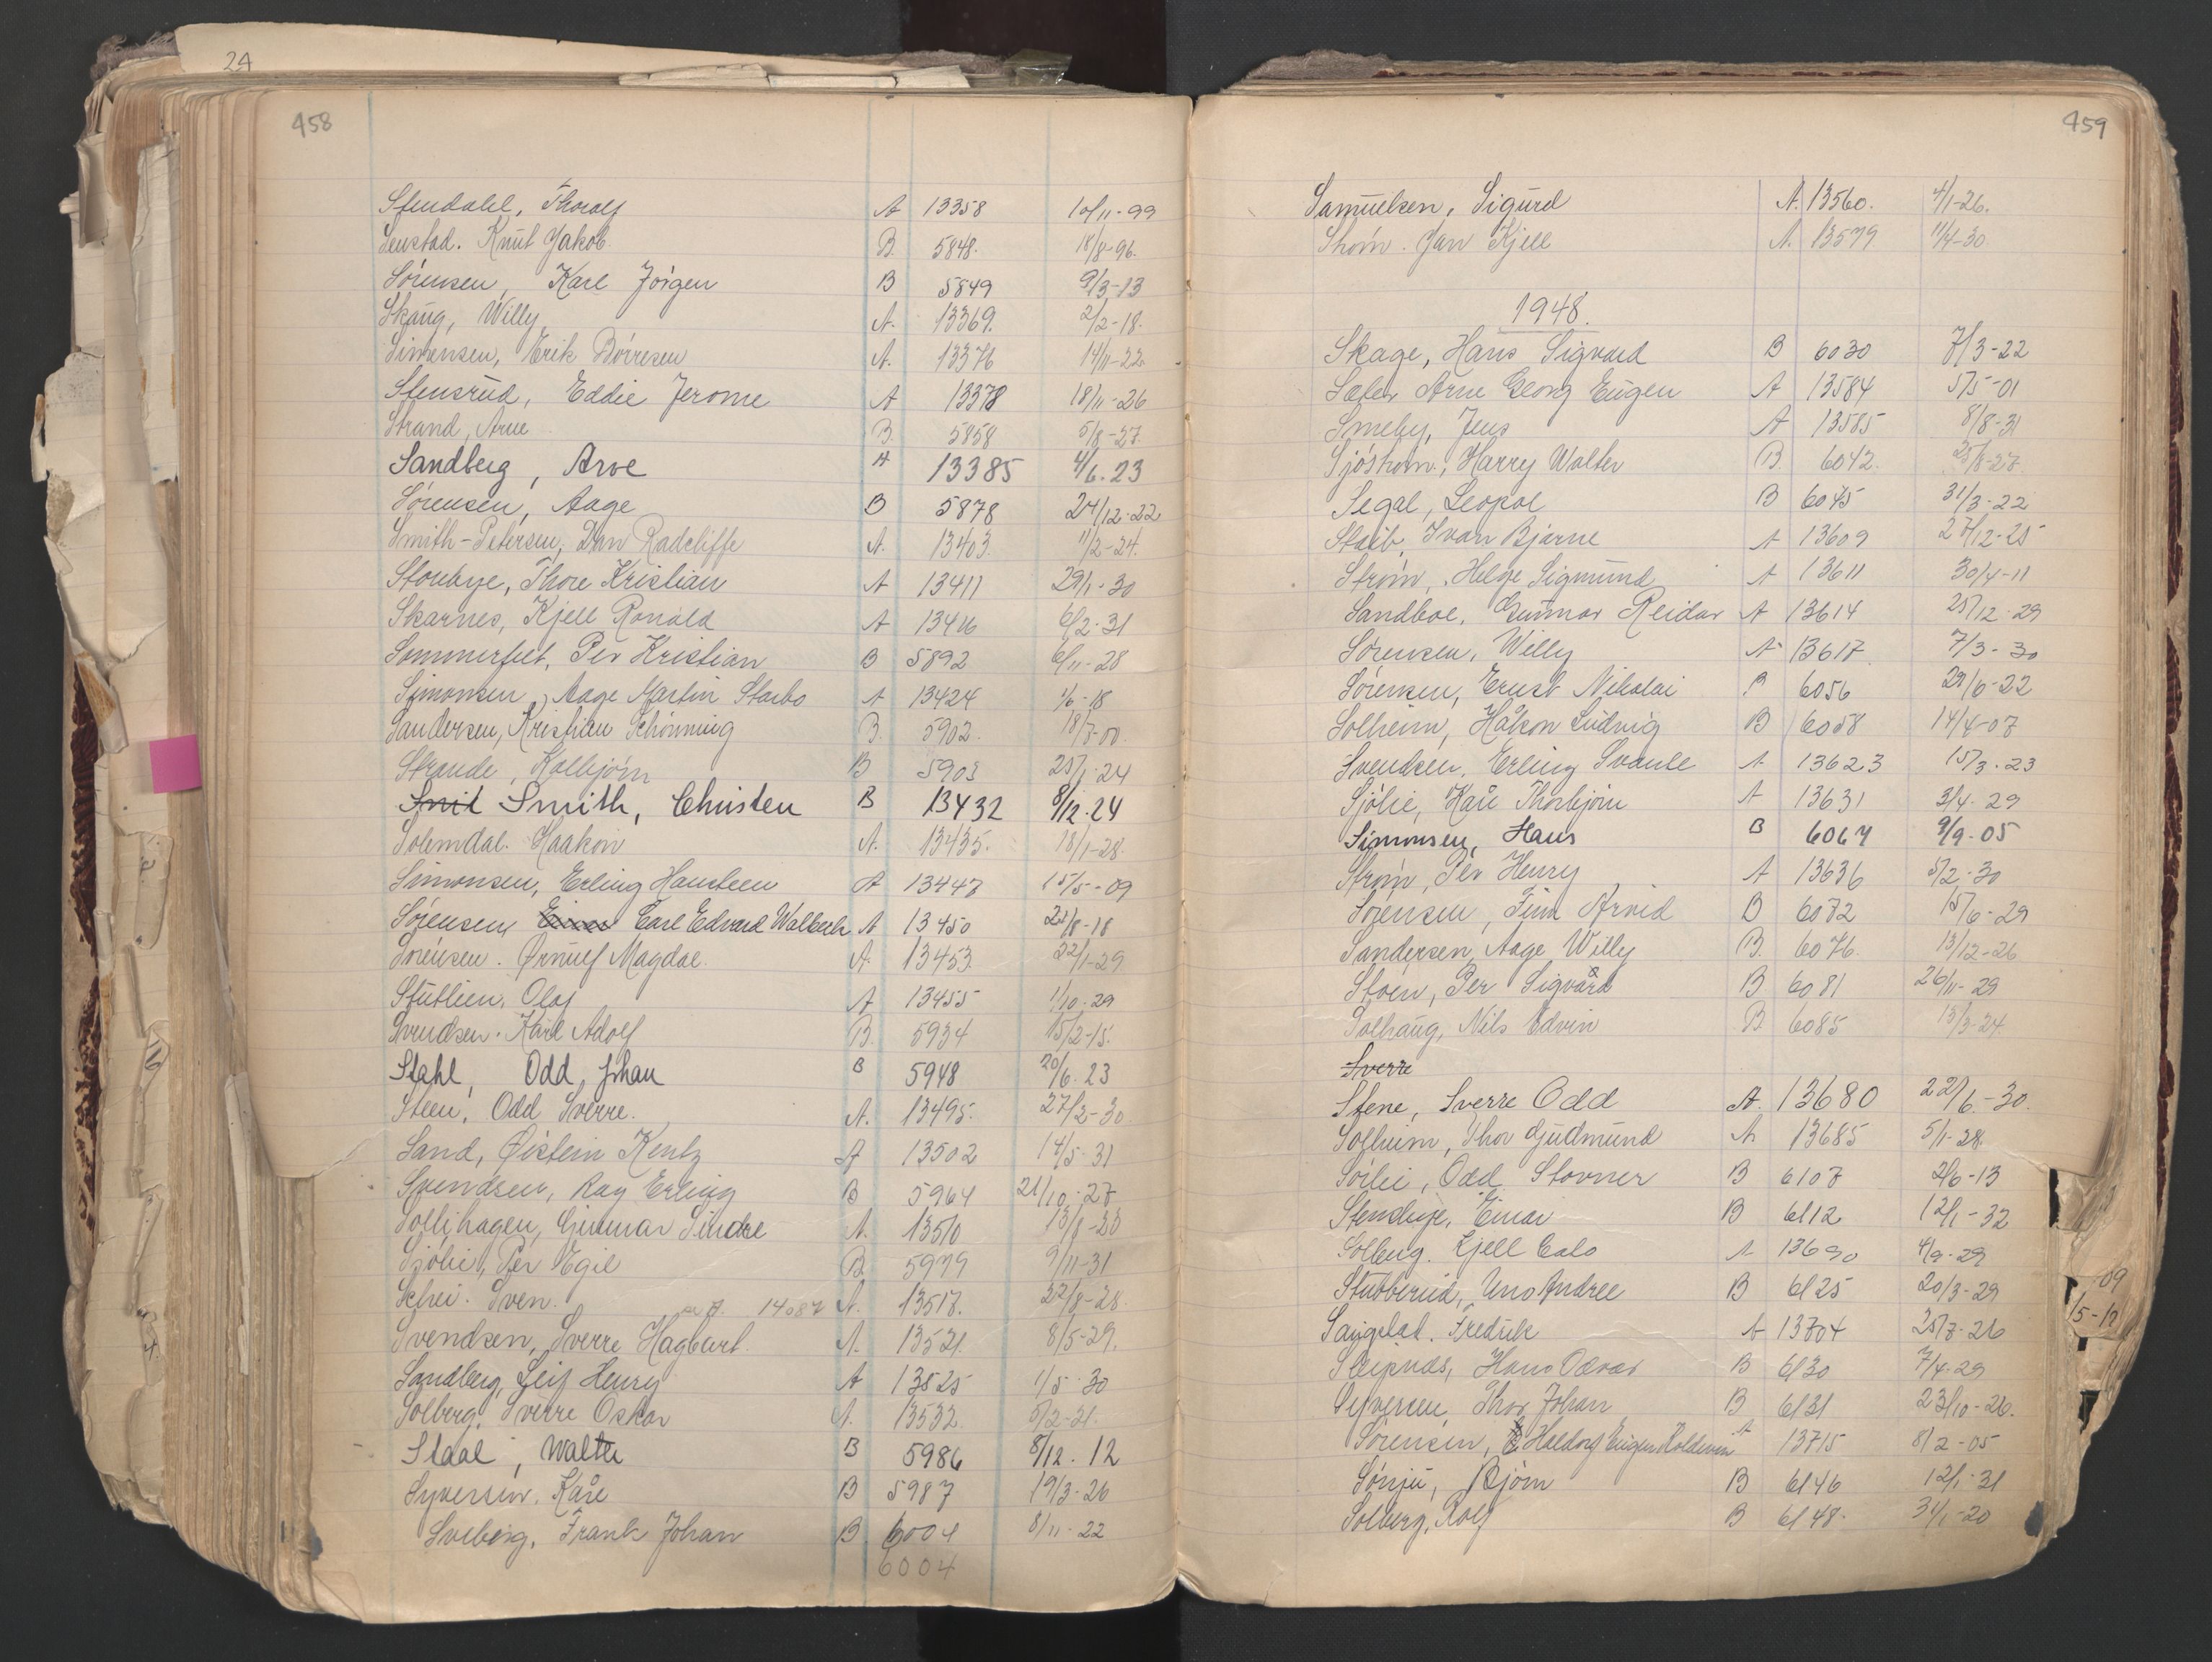 24
458
Stendahl, Thoralf A 13358 10/11-99
Senstad. Knut Jakob B. 5848. 18/8-96.
Sörensen, Karl Jörgen B 5849 9/3-13
Skaug, Willy A. 13369. 2/2-18.
Simensen, Erik Börresen A. 13376 14/11-22
Stensrud, Eddie Jerome A 13378 18/11-26
Strand, Arne B. 5858 5/8-27
Sandberg, Arve A 13385 4/6.23
Sørensen, Aage B 5878 24/12-22
Smith-Petersen, Dan Radcliffe A. 13403. 11/2-24.
Stonbye, Thore Kristian A 13411 29/1-30
Skarnes, Kjell Ronald A 13416 6/2-31
Sommerfelt, Per Kristian B 5892 6/11-28
Simonsen, Aage Martin Starbo A 13424 1/6-18
Sandersen, Kristian Schönning B. 5902. 18/3-00.
Strande, Kolbjörn B 5903 25/1-24
Smit Smith, Christen B 13432 8/12.24
Solemdal. Haakon A. 13435. 18/1-28.
Simonsen, Erling Hansteen A 13447 15/5-09
Sørensen, Einar Carl Edvard Walbech A 13450 22/8-18
Sörensen. Ørnulf Magdal. A. 13453. 22/1-29
Stutlien, Olaf A 13455 1/10-29
Svendsen. Karl Adolf B. 5934 15/2-15.
Stahl, Odd Johan B 5948 20/6.23
Steen, Odd Sverre. A. 13495. 27/2-30.
Sand, Øistein Kentz A 13502 14/5-31
Svendsen, Ray Erling B 5964 21/10-27
Sollihagen, Gunnar Sindre A. 13510 13/8-23
Sjölie, Per Egil B 5979 9/11-31
Schei. Sven. 14087 A. 13517. 22/8-28.
Svendsen, Sverre Hagbart. A. 13521. 8/5-29.
Sandberg, Leif Henry A 13525 1/5-30
Solberg, Sverre Oskar A. 13532. 5/2-31.
Staal, Walter B 5986 8/12.12
Syversen, Kåre B 5987 19/3-26
Solberg, Frank Johan B. 6004 8/11-22
6004
459
Samuelsen, Sigurd A. 13560. 4/1-26.
Strøm. Jan Kjell A. 13579 11/4-30
1948.
Skage, Hans Sigvard B 6030 7/3-22
Sæler Arne Georg Eugen A 13584 5/5-01
Smeby, Jens A 13585 8/8-31
Sjöstrøm, Harry Walter B. 6042. 25/8-27.
Segal, Leopol B 6045 31/3-22
Staib, Ivan Bjarne A 13609 27/12-25
Strøm, Helge Sigmund A 13611 30/4-11
Sandboe, Gunnar Reidar A 13614 25/12-29
Sørensen, Willy A 13617 7/3-30
Sörensen, Ernst Nikolai B 6056 29/6-22
Solheim, Håkon Ludvig B 6058 14/4-07
Svendsen, Erling Svante A 13623 15/3.23
Sjölie, Kåre Thorbjörn A 13631 3/4-29
Simonsen, Hans B 6067 9/9-05
Strøm, Per Henry A 13636 5/2-30
Sørensen, Finn Arvid B 6072 15/6-29
Sandersen, Aage Willy B. 6076. 13/12-26
Stoen, Per Sigvard B 6081 26/11-29
Solhaug, Nils Edvin B 6085 13/3-24.
Sverre
Stene, Sverre Odd A. 13680 22/6-30.
Solheim, Thor Gudmund A. 13685 5/1-28.
Sörlie, Odd Stovner B 6107 2/6-13
Stenslvje, Einar B 6112 12/1-32
Solberg. Kjell Calo A 13690 4/9-29
Stubberud, Uno Andree B 6125 20/3-29
Saugstad. Fredrik A 13704 25/7-26
Sleipnæs, Hans Odvar B 6130 7/4-29
Syversen, Thor Johan B 6131 23/10-26.
Sørensen, Haldorf Eugen Koldevin A 13715 8/2-05
Sönju, Bjørn B 6146 12/1-31
Solberg, Rolf B 6148. 31/1-20
09
15-12